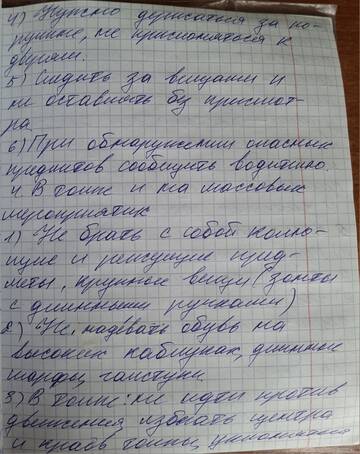 4) Нужно держаться за по-
ручние, не прислоняться к
дверям.
5) Следить за вещами и
не оставлять без присмот-
ра
6) При обнаружении опасных
предметов сообщить водителю.
4 В толпе и на массовых
мероприятиях
1) Не брать с собой колю-
щие и режущие пред-
меты, крупные вещи (зонты
с длинными ручками)
2) Не, надевать обувь на
высоких каблуках, длинные
шарфы, галстуки.
3) В толпе: не идти против
движения избегать центра
и краёв толпы,